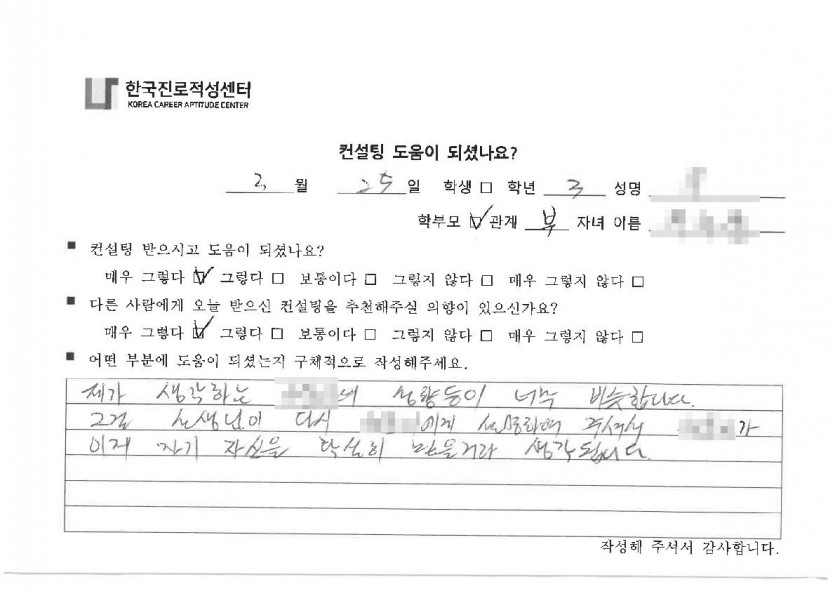 한국진로적성센터
KOREA CAREER APTITUDE CENTER
컨설팅 도움이 되셨나요?
2 월 25 일 학생 □ 학년 3 성명
학부모 ☑ 관계 부 자녀 이름
■ 컨설팅 받으시고 도움이 되셨나요?
매우 그렇다 ☑ 그렇다 □ 보통이다 □ 그렇지 않다 □ 매우 그렇지 않다 □
■ 다른 사람에게 오늘 받으신 컨설팅을 추천해주실 의향이 있으신가요?
매우 그렇다 ☑ 그렇다 □ 보통이다 □ 그렇지 않다 □ 매우 그렇지 않다 □
■ 어떤 부분에 도움이 되셨는지 구체적으로 작성해주세요.
제가 생각하는 의 성향등이 너무 비슷합니다.
그걸 선생님이 다시 에게 설명하여 주셔서 가
이제 자기 자신을 확실히 믿을거라 생각됩니다.
작성해 주셔서 감사합니다.